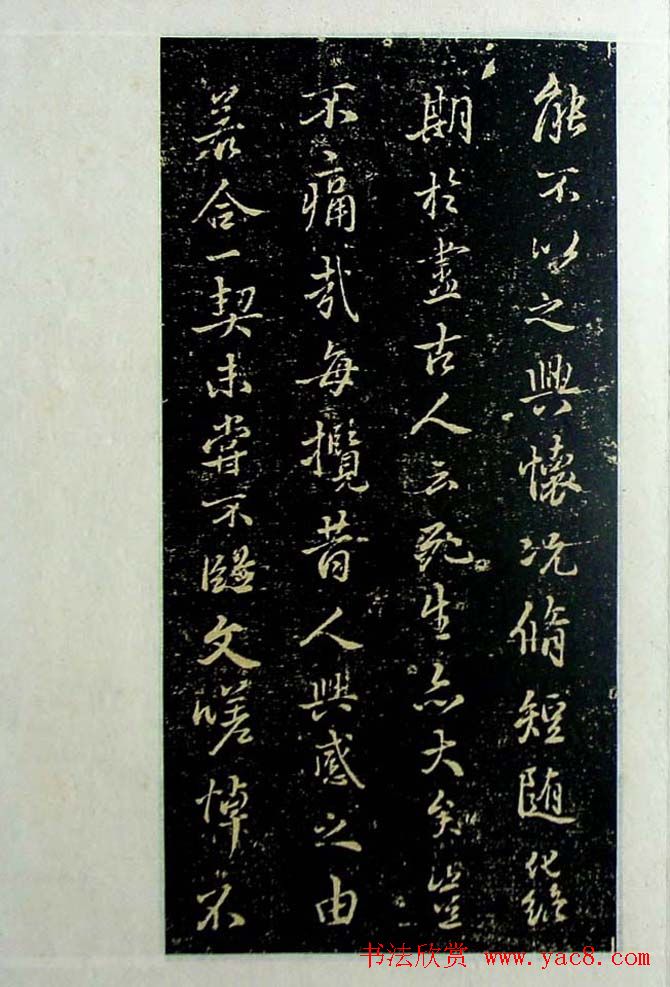 能不以之興懷況脩短隨化終
期於盡古人云死生亦大矣豈
不痛哉每攬昔人興感之由
若合一契未嘗不臨文嗟悼不
书法欣赏 www.yac8.com